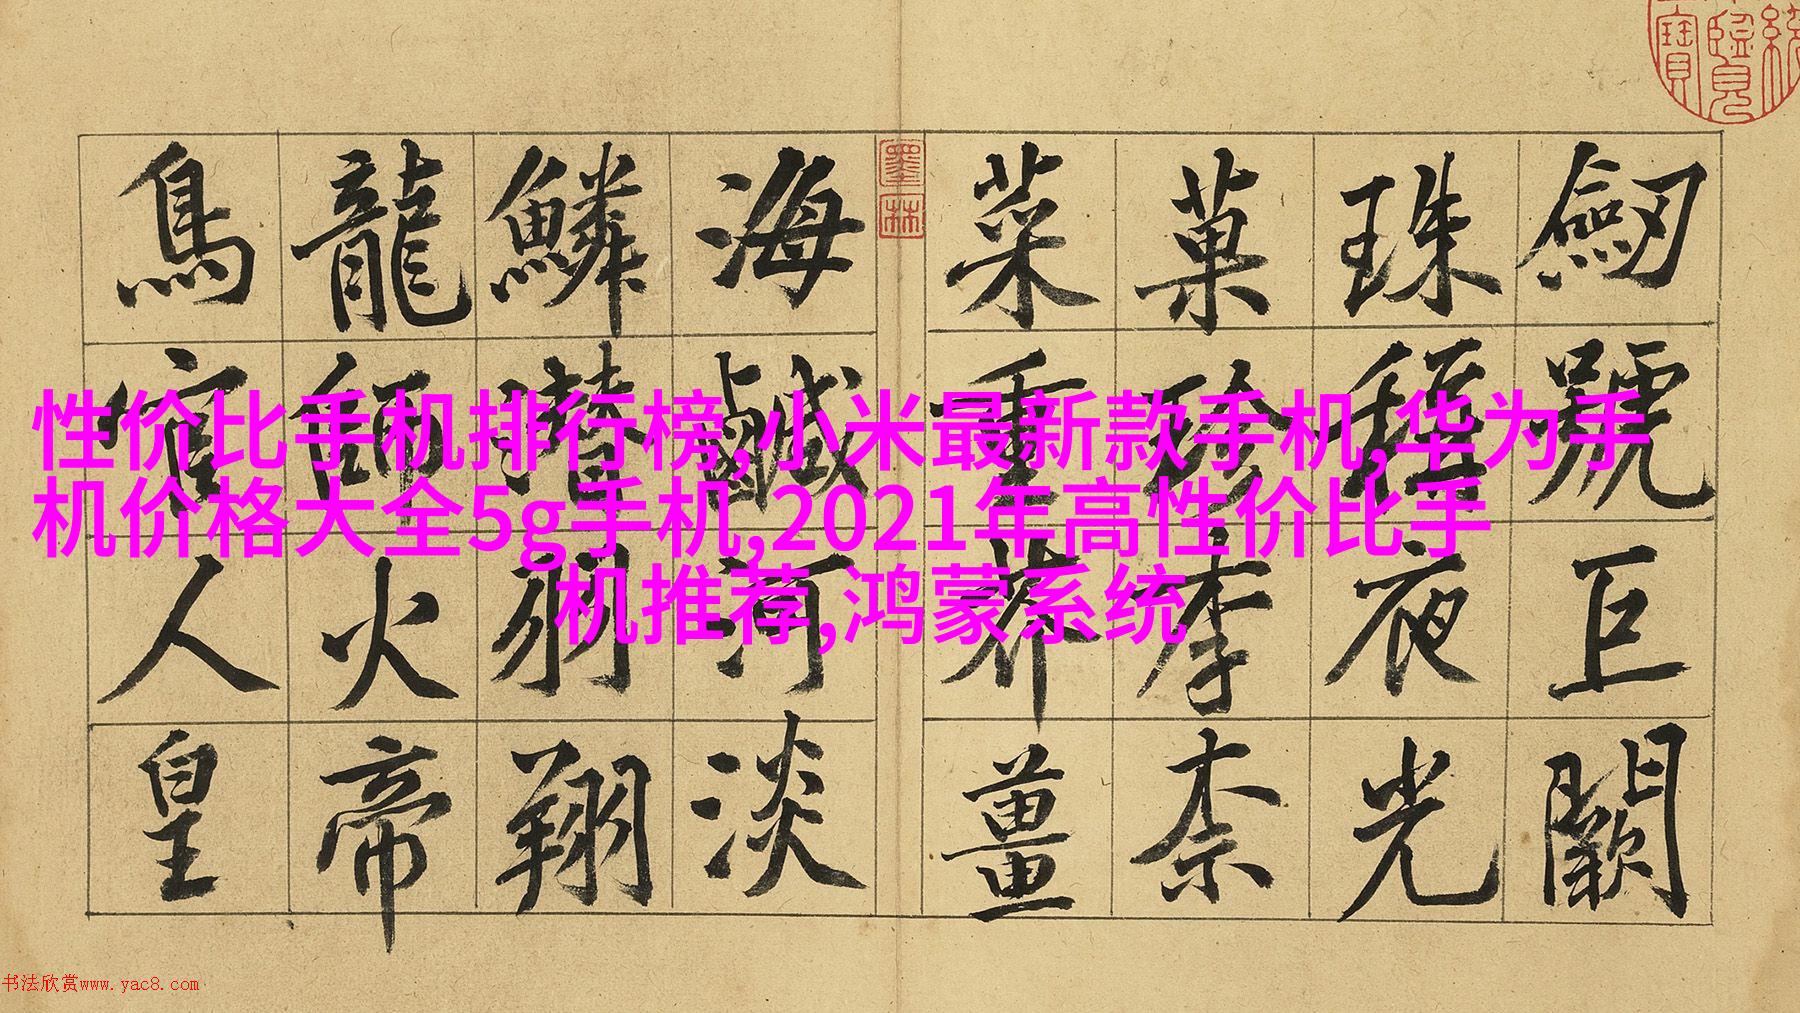 劒號巨闕
珠稱夜光
菓珍李柰
菜重芥薑
海鹹河淡
鱗潛羽翔
龍師火帝
鳥官人皇
墨林
性价比手机排行榜,小米最新款手机,华为手
机价格大全5g手机,2021年高性价比手
机推荐,鸿蒙系统
书法欣赏www.yac8.com